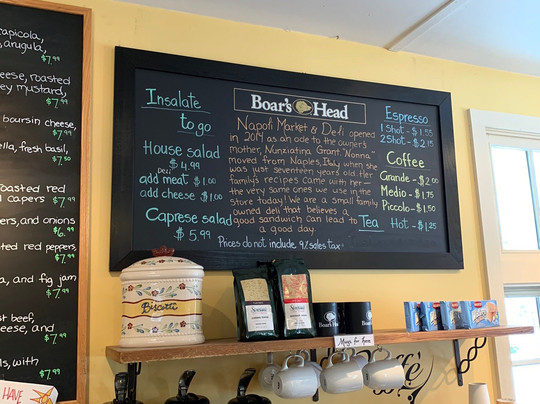 apicola,
arugula,
$7.99
eese, roasted
ey mustard,
$7.99
boursin cheese,
$7.99
ella, fresh basil,
$7.50
oasted red
capers $7.99
ers, and onions
$6.99
ted red peppers,
$7.99
a, and fig jam
$7.99
st beef,
eese, and
$7.99
ls, with
$7.99
HAVE
Insalate
to go
House salad
$4.99
DELI
add meat $1.00
add cheese $1.00
Caprese salad
$5.99
Boar's Head
Napoli Market & Deli opened
in 2014 as an ode to the owner's
mother, Nunziatina Grant. "Nonna"
moved from Naples, Italy when she
was just seventeen years old. Her
family's recipes came with her—
the very same ones we use in the
store today! We are a small family
owned deli that believes a
good sandwich can lead to
a good day.
Prices do not include 9% sales tax
Espresso
1 Shot - $1.55
2 Shot - $2.15
Coffee
Grande - $2.00
Medio - $1.75
Piccolo - $1.50
Tea Hot - $1.25
Biscotti
Boar's Head
Mugs for here
Caffé